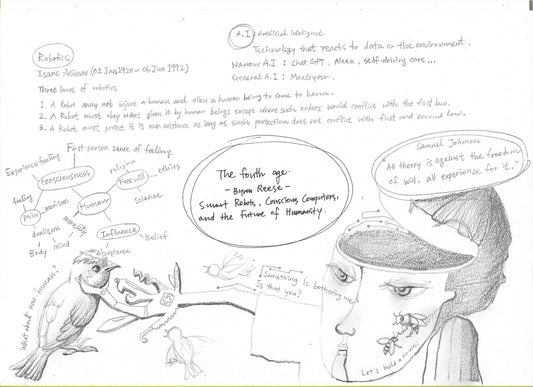 A.I : Artificial Intelligence
Technology that reacts to data or the environment.
Narrow A.I : Chat GPT, Alexa, self-driving cars...
General A.I : Macgyver.
Robotics
Isaac Asimov (02 Jan 1920 ~ 06 Jun 1992)
Three laws of robotics
1. A Robot may not injure a human, and allow a human being to come to harm.
2. A Robot must obey orders given it by human beings except where such orders would conflict with the first law.
3. A Robot must protect it is own existence as long as such protection does not conflict with first and second law.
First-person sense of feeling
Experience feeling
consciousness
religion
Free will
ethics
science
feeling
pain
Human
monism
dualism
Body
mind
morality
Influence
Acceptance
Belief
The fouth age.
- Byron Reese -
Smart Robots, Conscious Computers,
and the Future of Humanity.
Samuel Johnson
"All theory is against the freedom
of will; all experience for it."
What about non-humans?
Something is bothering me,
Is that you?
Let's build a home.